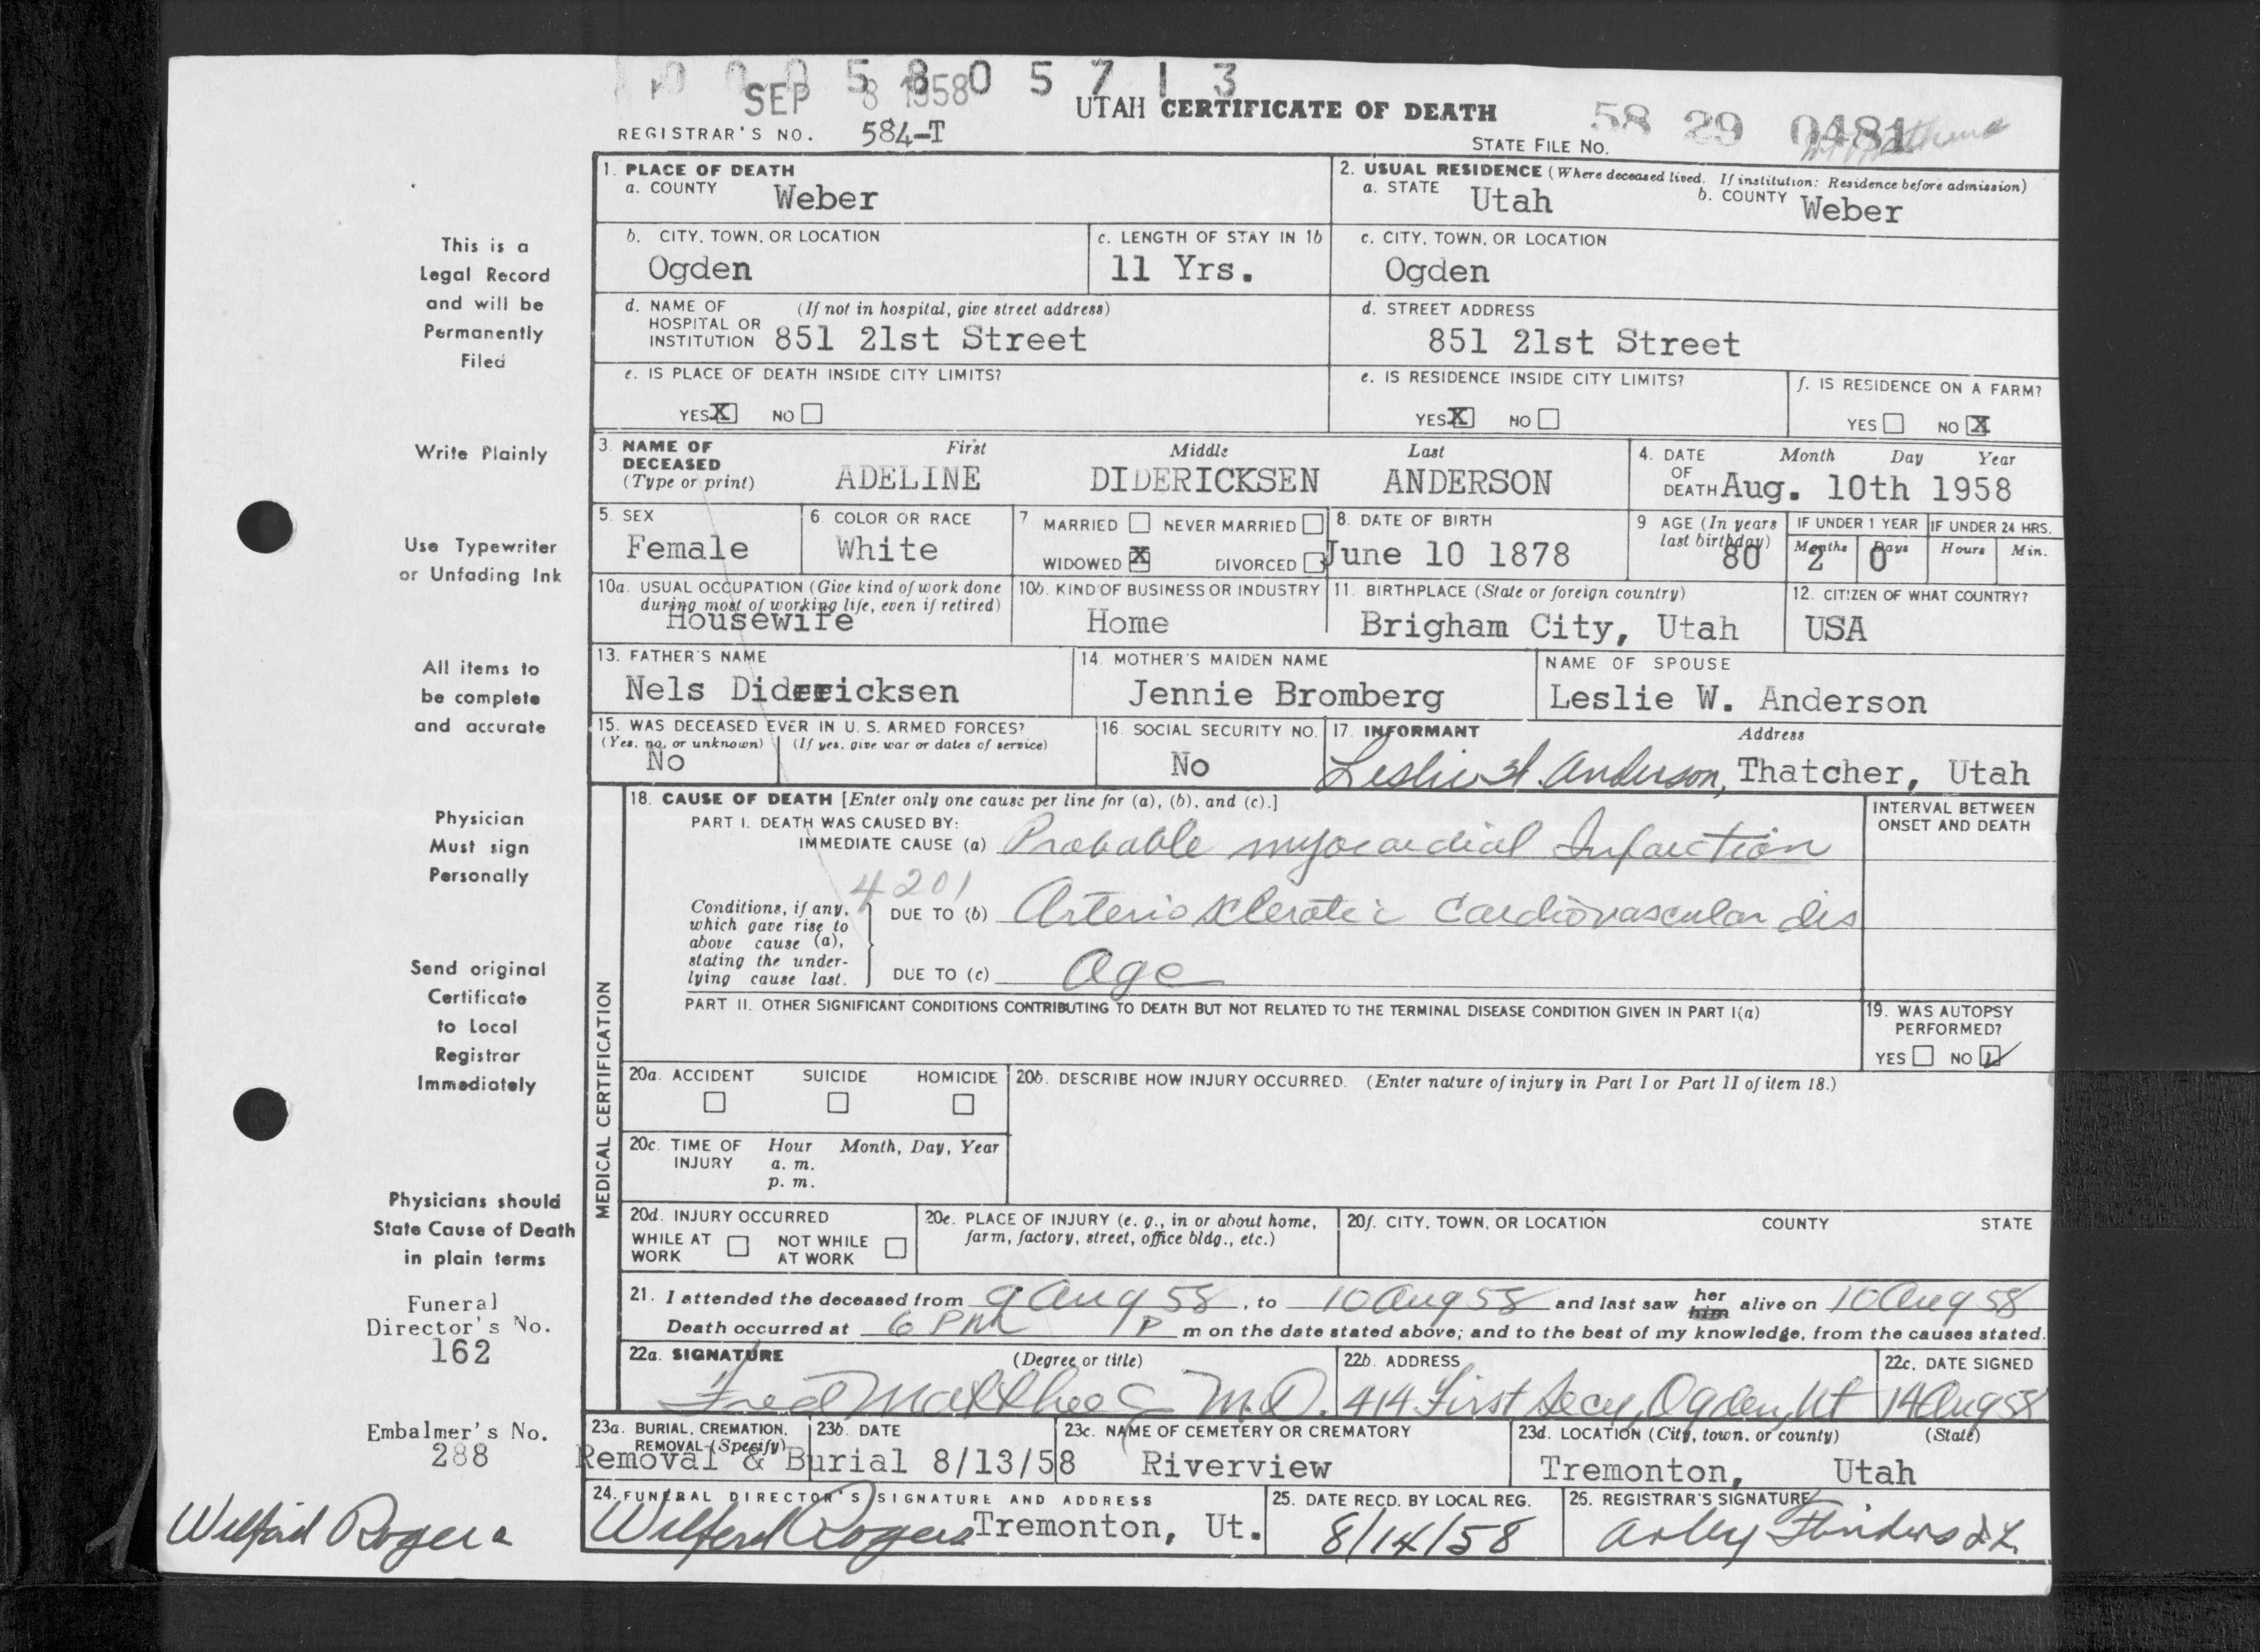 0 0 0 5 8 0 5 7 1 3
SEP 8 1958
UTAH CERTIFICATE OF DEATH
58 29 0481
REGISTRAR'S NO. 584-T
STATE FILE NO.
1. PLACE OF DEATH
a. COUNTY Weber
2. USUAL RESIDENCE (Where deceased lived. If institution: Residence before admission)
a. STATE Utah b. COUNTY Weber
b. CITY, TOWN, OR LOCATION Ogden
c. LENGTH OF STAY IN 1b 11 Yrs.
c. CITY, TOWN, OR LOCATION Ogden
d. NAME OF HOSPITAL OR INSTITUTION (If not in hospital, give street address) 851 21st Street
d. STREET ADDRESS 851 21st Street
e. IS PLACE OF DEATH INSIDE CITY LIMITS?
YES X NO
e. IS RESIDENCE INSIDE CITY LIMITS?
YES X NO
f. IS RESIDENCE ON A FARM?
YES NO X
3. NAME OF DECEASED (Type or print)
First Middle Last
ADELINE DIDERICKSEN ANDERSON
4. DATE OF DEATH Month Day Year
Aug. 10th 1958
5. SEX Female
6. COLOR OR RACE White
7 MARRIED NEVER MARRIED
WIDOWED X DIVORCED
8. DATE OF BIRTH June 10 1878
9 AGE (In years last birthday) 80
IF UNDER 1 YEAR Months 2 Days 0
IF UNDER 24 HRS. Hours Min.
10a. USUAL OCCUPATION (Give kind of work done during most of working life, even if retired) Housewife
10b. KIND OF BUSINESS OR INDUSTRY Home
11. BIRTHPLACE (State or foreign country) Brigham City, Utah
12. CITIZEN OF WHAT COUNTRY? USA
13. FATHER'S NAME Nels Didericksen
14. MOTHER'S MAIDEN NAME Jennie Bromberg
NAME OF SPOUSE Leslie W. Anderson
15. WAS DECEASED EVER IN U. S. ARMED FORCES?
(Yes, no, or unknown) (If yes, give war or dates of service)
No
16. SOCIAL SECURITY NO. No
17. INFORMANT Address
Leslie H. Anderson, Thatcher, Utah
MEDICAL CERTIFICATION
18. CAUSE OF DEATH [Enter only one cause per line for (a), (b), and (c).]
INTERVAL BETWEEN ONSET AND DEATH
PART I. DEATH WAS CAUSED BY:
IMMEDIATE CAUSE (a) Probable myocardial Infarction
4201
Conditions, if any, which gave rise to above cause (a), stating the underlying cause last.
DUE TO (b) Arteriosclerotic Cardiovascular dis
DUE TO (c) Age
PART II. OTHER SIGNIFICANT CONDITIONS CONTRIBUTING TO DEATH BUT NOT RELATED TO THE TERMINAL DISEASE CONDITION GIVEN IN PART I(a)
19. WAS AUTOPSY PERFORMED?
YES NO
20a. ACCIDENT SUICIDE HOMICIDE
20b. DESCRIBE HOW INJURY OCCURRED. (Enter nature of injury in Part I or Part II of item 18.)
20c. TIME OF INJURY Hour Month, Day, Year
a. m.
p. m.
20d. INJURY OCCURRED
WHILE AT WORK NOT WHILE AT WORK
20e. PLACE OF INJURY (e. g., in or about home, farm, factory, street, office bldg., etc.)
20f. CITY, TOWN, OR LOCATION COUNTY STATE
21. I attended the deceased from 9 Aug 58, to 10 Aug 58 and last saw her him alive on 10 Aug 58
Death occurred at 6 PM P m on the date stated above; and to the best of my knowledge, from the causes stated.
22a. SIGNATURE (Degree or title)
Fred Matthees M.D.
22b. ADDRESS 414 First Secy, Ogden, Ut
22c. DATE SIGNED 14 Aug 58
23a. BURIAL, CREMATION, REMOVAL (Specify) Removal & Burial
23b. DATE 8/13/58
23c. NAME OF CEMETERY OR CREMATORY Riverview
23d. LOCATION (City, town, or county) (State)
Tremonton, Utah
24. FUNERAL DIRECTOR'S SIGNATURE AND ADDRESS
Wilford Rogers Tremonton, Ut.
25. DATE RECD. BY LOCAL REG. 8/14/58
26. REGISTRAR'S SIGNATURE
Flinders
This is a
Legal Record
and will be
Permanently
Filed
Write Plainly
Use Typewriter
or Unfading Ink
All items to
be complete
and accurate
Physician
Must sign
Personally
Send original
Certificate
to Local
Registrar
Immediately
Physicians should
State Cause of Death
in plain terms
Funeral
Director's No.
162
Embalmer's No.
288
Wilford Rogers